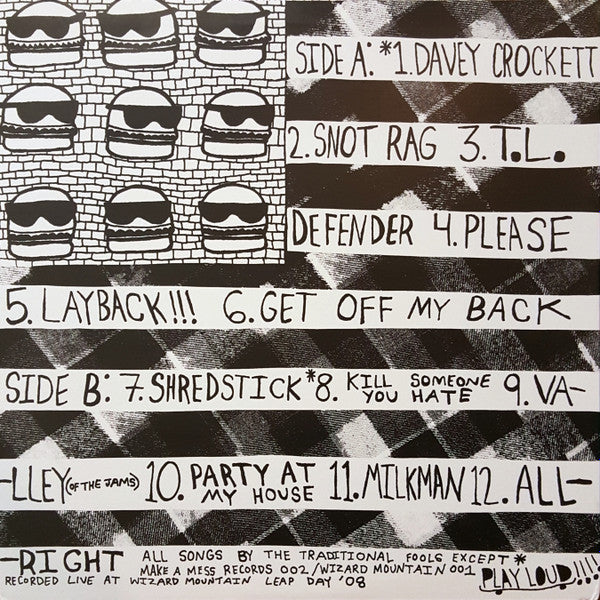 SIDE A: *1. DAVEY CROCKETT
2. SNOT RAG 3. T.L.
DEFENDER 4. PLEASE
5. LAYBACK!!! 6. GET OFF MY BACK
SIDE B: 7. SHREDSTICK *8. KILL SOMEONE YOU HATE 9. VA-
-LLEY (OF THE JAMS) 10. PARTY AT MY HOUSE 11. MILKMAN 12. ALL-
-RIGHT ALL SONGS BY THE TRADITIONAL FOOLS EXCEPT *
MAKE A MESS RECORDS 002/WIZARD MOUNTAIN 001
RECORDED LIVE AT WIZARD MOUNTAIN LEAP DAY '08
PLAY LOUD!!!!